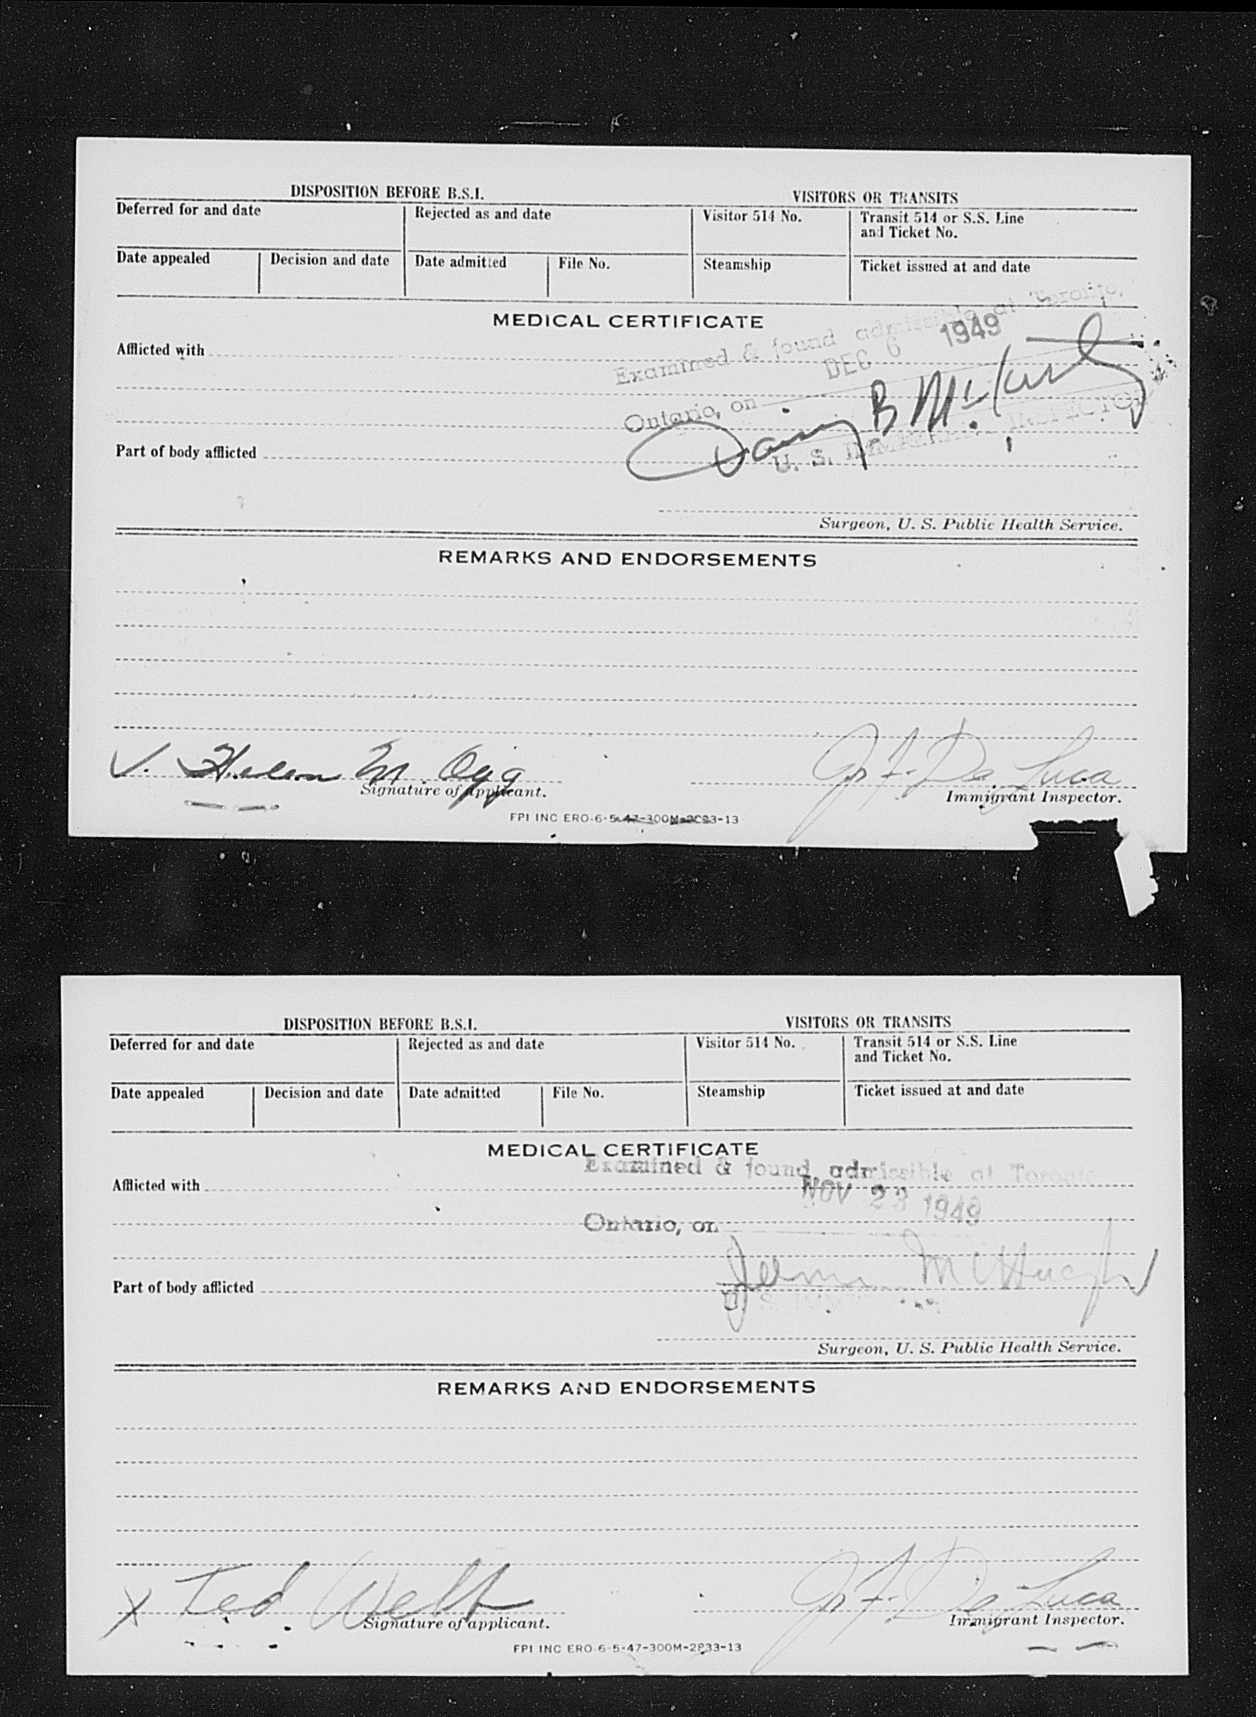 DISPOSITION BEFORE B.S.I. VISITORS OR TRANSITS
Deferred for and date Rejected as and date Visitor 514 No. Transit 514 or S.S. Line and Ticket No.
Date appealed Decision and date Date admitted File No. Steamship Ticket issued at and date
MEDICAL CERTIFICATE
Examined & found admissible at Toronto,
DEC 6 1949
Afflicted with
Ontario, on
B
U. S. INSPECTOR
Part of body afflicted
Surgeon, U. S. Public Health Service.
REMARKS AND ENDORSEMENTS
Helen M. Ogg
De Luca
Signature of applicant. Immigrant Inspector.
FPI INC ERO-6-5-47-300M-2833-13
DISPOSITION BEFORE B.S.I. VISITORS OR TRANSITS
Deferred for and date Rejected as and date Visitor 514 No. Transit 514 or S.S. Line and Ticket No.
Date appealed Decision and date Date admitted File No. Steamship Ticket issued at and date
MEDICAL CERTIFICATE
Examined & found admissible at Toronto
Afflicted with
NOV 23 1949
Ontario, on
McHugh
Part of body afflicted
Surgeon, U. S. Public Health Service.
REMARKS AND ENDORSEMENTS
X Ted Welt
De Luca
Signature of applicant. Immigrant Inspector.
FPI INC ERO-6-5-47-300M-2833-13